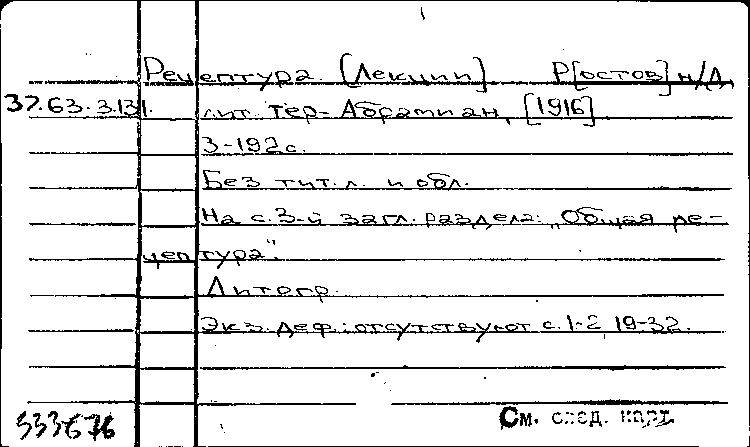 Рецептура. [Лекции] Р[остов] н/Д,
37.63.3.131. лит. Тер-Абрамиан, [1916].
3-192 с.
Без тит. л. и обл.
На с. 3-й загл. раздела: „Общая ре-
цептура".
Литогр.
Экз. деф.: отсутствуют с. 1-2, 19-32.
333676
См. след. карт.